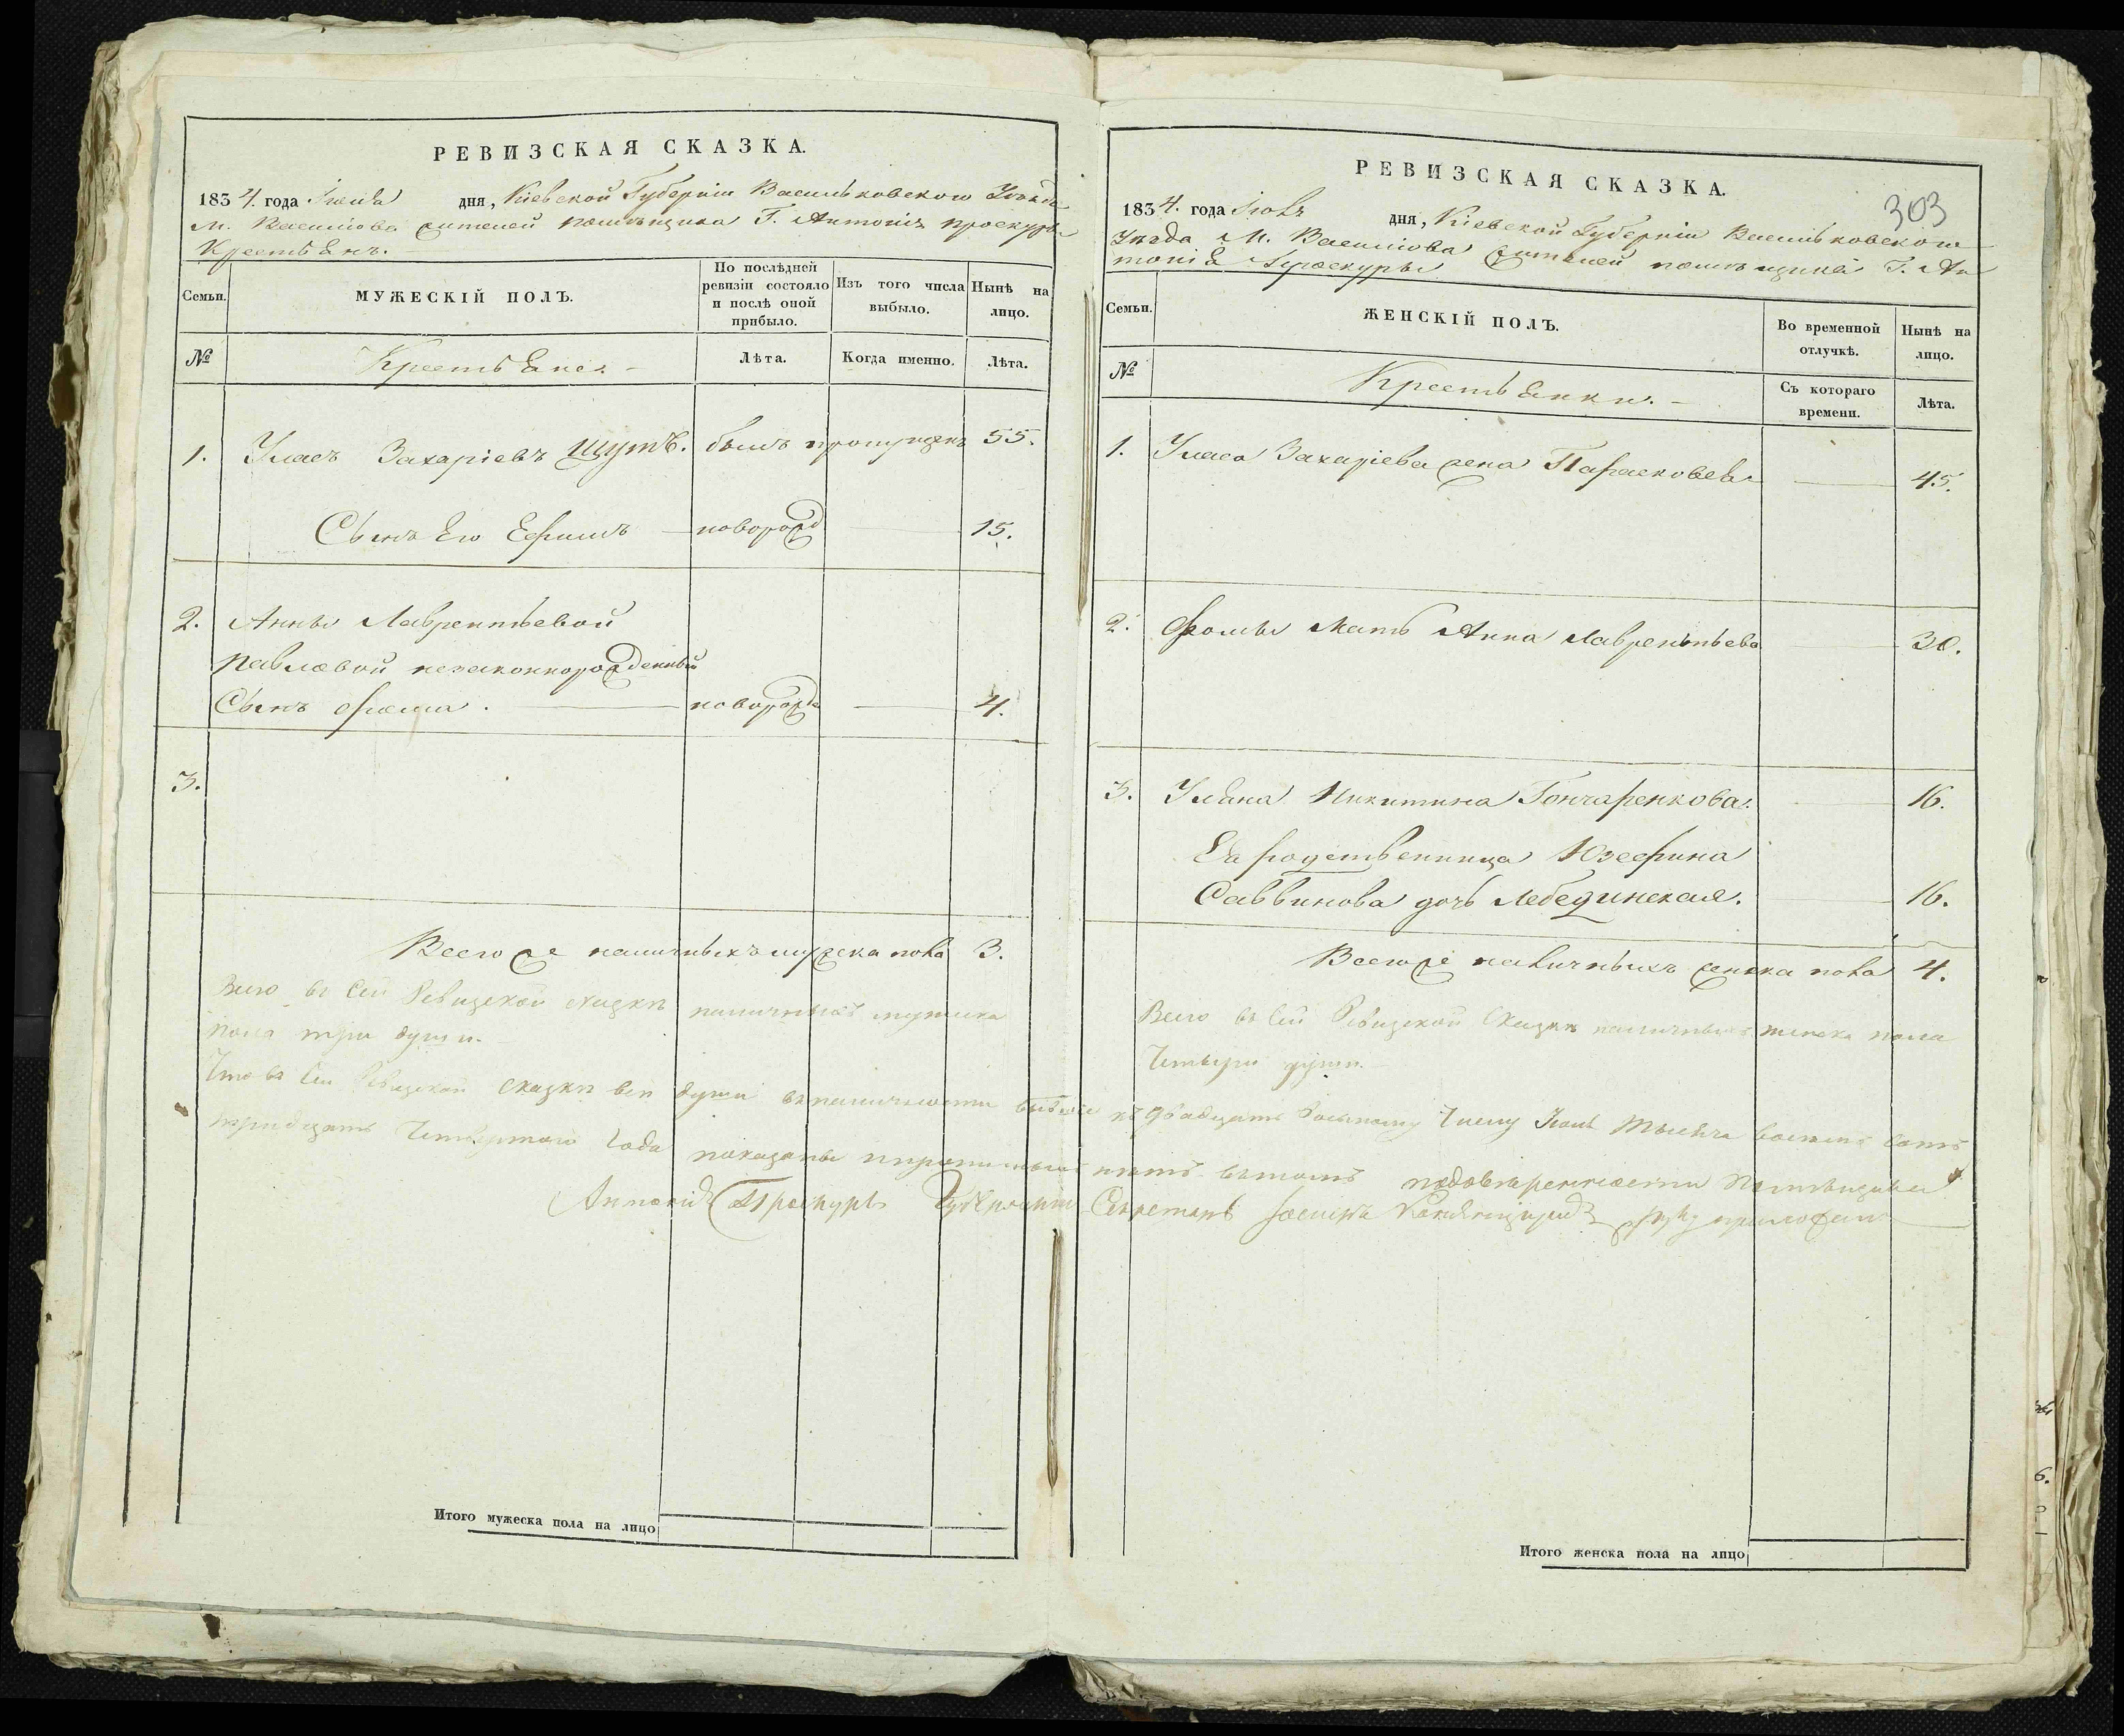 РЕВИЗСКАЯ СКАЗКА.
1834. года Іюня дня, Кіевской Губерніи Васильковского Уѣзда
М. Василіова жителей помѣщика Г. Антонія Проскуры
Крестьянъ.
Семьи.
МУЖЕСКІЙ ПОЛЪ.
По послѣдней ревизіи состояло и послѣ оной прибыло.
Изъ того числа выбыло.
Нынѣ на лицо.
№
Крестьяне.
Лѣта.
Когда именно.
Лѣта.
1. Уласъ Захаріевъ Шутъ. былъ пропущенъ 55.
Сынъ Его Ефимъ — новорожд — 15.
2. Анны Лаврентьевой
Павловой незаконнорожденный
Сынъ Фома. — новорожд — 4.
3.
Всего же наличныхъ мужеска пола 3.
Всего въ Сей Ревизской сказкѣ наличныхъ мужеска
пола три души.
РЕВИЗСКАЯ СКАЗКА.
303
1834. года дня, Кіевской Губерніи Васильковского
Уѣзда М. Василіова жителей помѣщика Г. Ан
тонія Проскуры
Семьи.
ЖЕНСКІЙ ПОЛЪ.
Во временной отлучкѣ.
Нынѣ на лицо.
№
Крестьянки.
Съ котораго времени.
Лѣта.
1. Уласа Захаріева жена Парасковея — 45.
2. Фомы Мать Анна Лаврентьева — 30.
3. Уляна Никитина Гончаренкова. — 16.
Ея родственница Юзефина
Саввинова дочь Лебединская. — 16.
Всего же наличныхъ женска пола 4.
Всего въ Сей Ревизской Сказкѣ наличныхъ женска пола
Четыри души.
Что въ Сей Ревизской сказкѣ все души въ наличности къ двадцать Числу Тысяча восемь сотъ
тридцать Четвертого Года показаны и прописныхъ нѣтъ въ томъ по довѣренности Помѣщика
Антонія Проскуры Губернскій Секретарь руку приложилъ
Итого мужеска пола на лицо
Итого женска пола на лицо